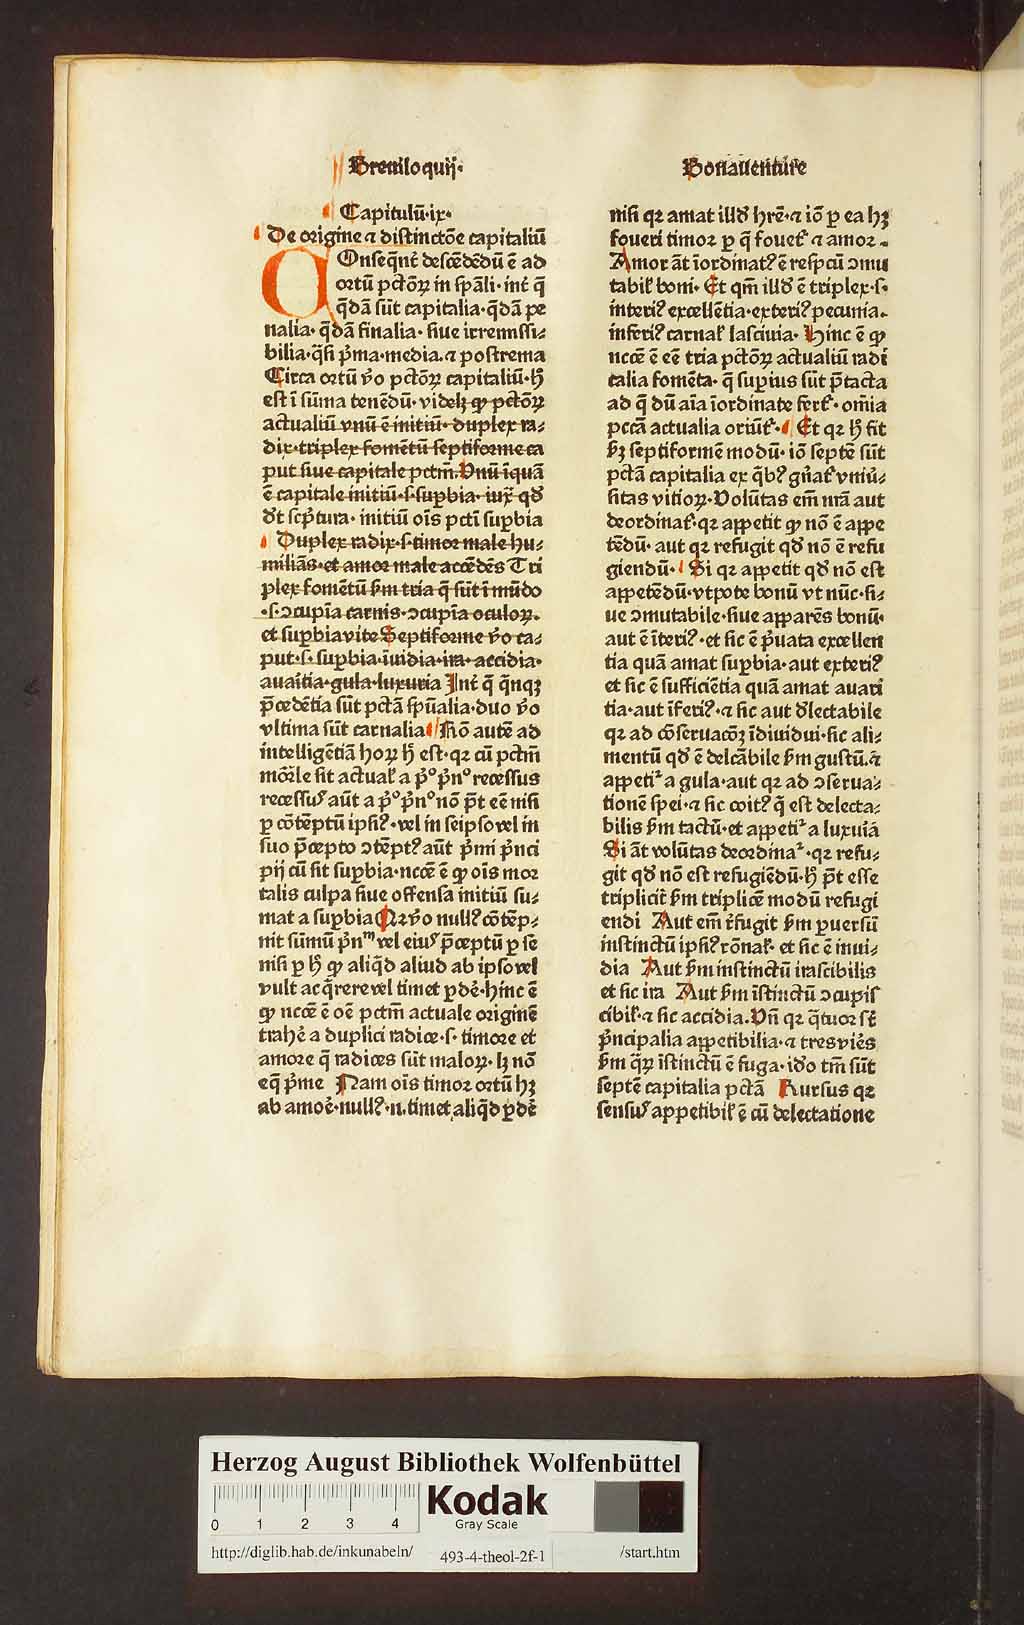 Breuiloquij·
Bonauenture
Capitulū·ix·
De origine ⁊ distinctōe capitaliū
COnseq̄nt᷑ descēdēdū ē ad
ortū pctōꝝ in sp̄ali· int᷑ q̄
q̄dā sūt capitalia· q̄dā pe
nalia· q̄dā finalia· siue irremissi⸗
bilia· q̄si p̄ma· media· ⁊ postrema
Circa ortū v̄o pctōꝝ capitaliū· h̄
est ī sūma tenēdū· videlꝫ ꝙ pctōꝝ
actualiū vnū ē initiū· duplex ra⸗
dix· triplex fomētū septiforme ca
put siue capitale pctm̄· Vnū īquā
ē capitale initiū· s· suꝑbia· iux̄ qđ
đt scp̄tura· initiū oīs pcti suꝑbia
Duplex radix· s· timor male hu⸗
miliās· et amor male accēdēs Tri
plex fomētū ẜm tria q̄ sūt ī mūdo
·s· ↄcupīa carnis· ↄcupīa oculoꝝ·
et suꝑbia vite Septiforme v̄o ca⸗
put· s· suꝑbia· īuidia· ira· accidia·
auaritia· gula· luxuria Int᷑ q̄ q̄nqꝫ
p̄cedētia sūt pctā spūalia· duo v̄o
vltima sūt carnalia Rō autē ad
intelligētiā hoꝝ h̄ est· qꝛ cū pctm̄
mōrle sit actual᷑ a p̊ pn̊ recessus
recessus aūt a p̊ pn̊ nō pt̄ eē nisi
ꝑ cōtēptū ipsiꝰ· vel in seipso vel in
suo p̄cepto ↄtēptꝰ aūt p̄mi p̄nci
pij cū sit suꝑbia· nccē ē ꝙ oīs mor
talis culpa siue offensa initiū su⸗
mat a suꝑbia Qꝛ v̄o nullꝰ cōtēp⸗
nit sūmū pn̄ᵐ vel eiꝰ p̄ceptū ꝑ se
nisi ꝑ h̄ ꝙ aliq̄d aliud ab ipso vel
vult acq̄rere vel timet ꝑdē· hinc ē
ꝙ nccē ē oē pctm̄ actuale originē
trahē a duplici radice· s· timore et
amore q̄ radices sūt maloꝝ· lꝫ nō
eq̄ p̄me Nam oīs timor ortū hꝫ
ab amoē· nullꝰ· n· timet aliq̄d ꝑdē
nisi qꝛ amat illđ hrē· ⁊ iō ꝑ ea hꝫ
foueri timor ꝑ q̄ fouet᷑ ⁊ amor·
Amor āt īordinatꝰ ē respcū ↄmu
tabil᷑ boni· Et qm̄ illđ ē triplex· s·
interiꝰ excellētia· exteriꝰ pecunia·
inferiꝰ carnal᷑ lasciuia· Hinc ē ꝙ
nccē ē eē tria pctōꝝ actualiū radi
calia fomēta· q̄ supius sūt p̄tacta
ad q̄ dū aīa īordinate fert᷑· om̄ia
pccā actualia oriūt᷑· Et qꝛ h̄ fit
ẜꝫ septiformē modū· iō septē sūt
pctā capitalia ex q̄bꝰ gn̄at᷑ vniu̇⸗
sitas vitioꝝ· Volūtas em̄ nrā aut
deordinat᷑· qꝛ appetit ꝙ nō ē appe
tēdū· aut qꝛ refugit qđ nō ē refu
giendū· Si qꝛ appetit qđ nō est
appetēdū· vtpote bonū vt nūc· si⸗
ue ↄmutabile· siue apparēs bonū·
aut ē īteriꝰ· et sic ē p̄uata excellen
tia quā amat suꝑbia· aut exteriꝰ
et sic ē sufficiētia quā amat auari
tia· aut īferiꝰ· ⁊ sic aut đlectabile
qꝛ ad cōseruacōꝫ īdiuidui· sic ali⸗
mentū qđ ē delcābile ẜm gustū· ⁊
appetiᷣ a gula· aut qꝛ ad ↄserua⸗
tionē spei· ⁊ sic coitꝰ q̄ est delecta⸗
bilis ẜm tactū· et appetiᷣ a luxuīā
Si āt volūtas deordinaᷣ· qꝛ refu⸗
git qđ nō est refugiēdū· h̄ pt̄ esse
triplicit᷑ ẜm triplicē modū refugi
endi Aut em̄ r̄fugit ẜm ꝑuersū
instinctū ipsiꝰ rōnal᷑· et sic ē inui⸗
dia Aut ẜm instinctū irascibilis
et sic ira Aut ẜm īstinctū ↄcupis
cibil᷑· ⁊ sic accidia· Vn̄ qꝛ q̄tuor st̄
p̄ncipalia appetibilia· ⁊ tres viēs
ẜm q̄ꝝ īstinctū ē fuga· iđo tm̄ sūt
septē capitalia pctā Rursus qꝛ
sensus appetibil᷑ ē cū delectatione
Herzog August Bibliothek Wolfenbüttel
0 1 2 3 4
Kodak
Gray Scale
http://diglib.hab.de/inkunabeln/
493-4-theol-2f-1
/start.htm